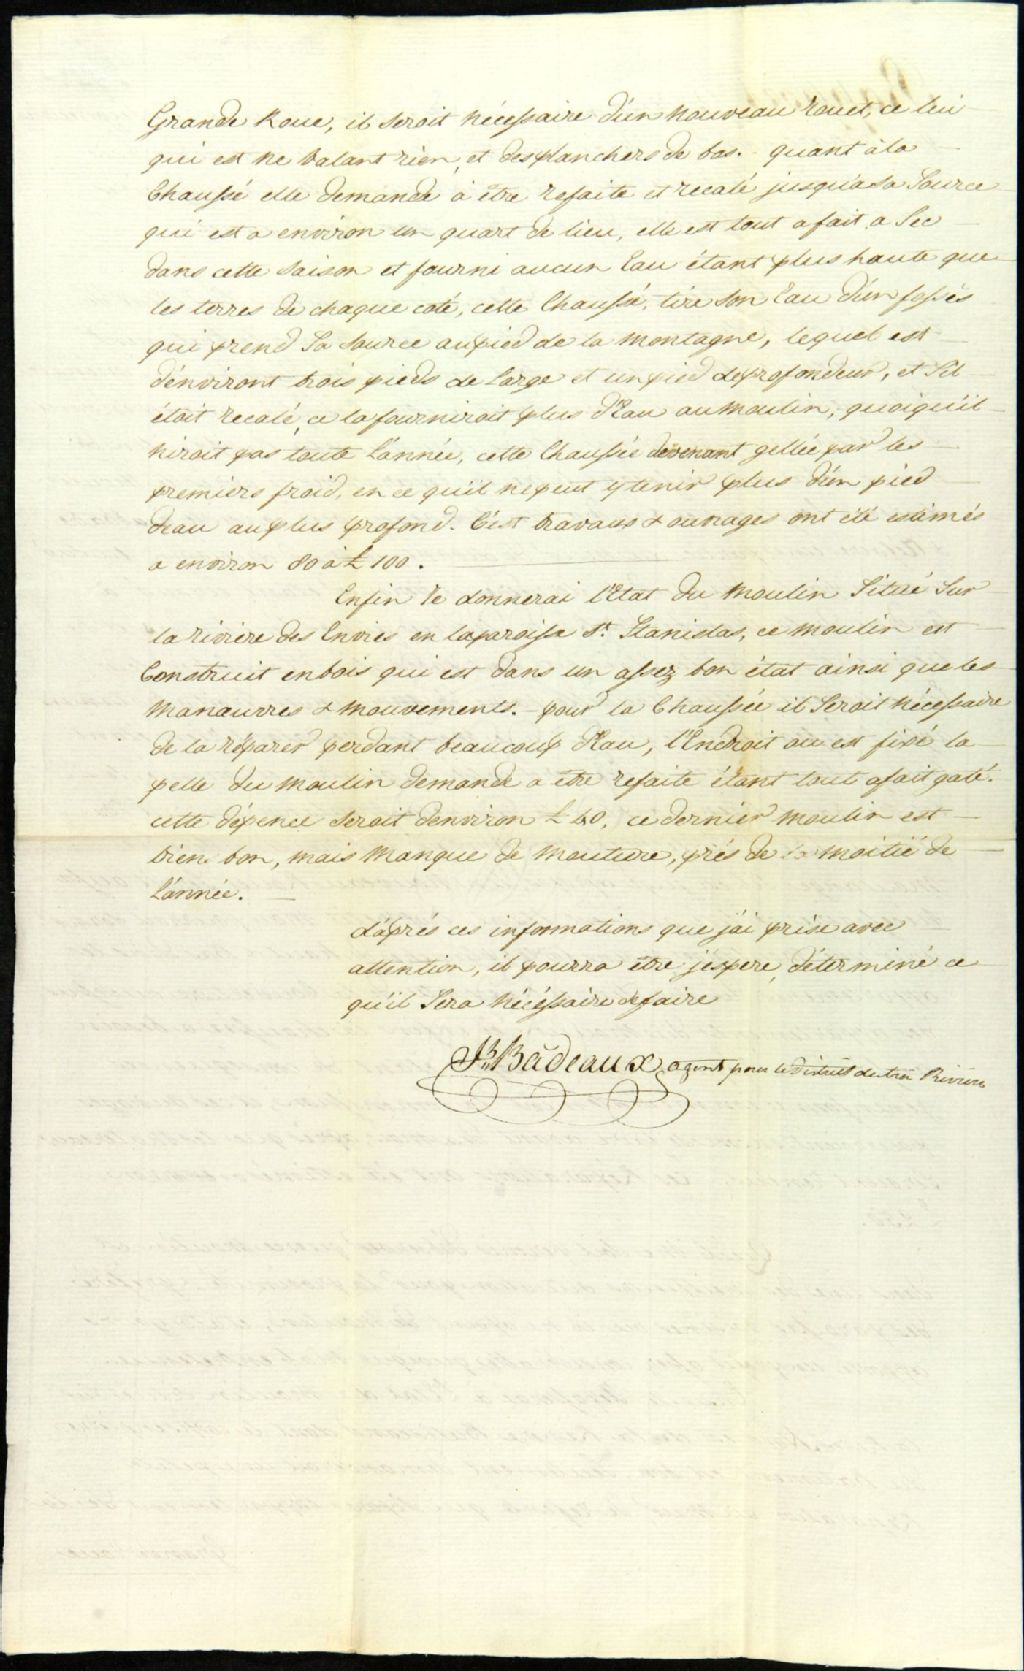 Grande Roue, il seroit nécessaire d'un nouveau rouet, ce lui
qui est ne valant rien, et des planchers de bas. quant à la
Chaussé elle demande à être refaite et recalé jusqu'a sa Source
qui est a environ un quart de lieu, elle est tout a fait a Sec
dans cette saison et fourni aucun Eau étant plus haute que
les terres de chaque coté, cette Chaussé, tire son Eau d'un fossés
qui prend Sa Source au pied de la montagne, lequel est
d'environt trois pieds de large et un pied de profondeur, et S'il
était recalé, ce la fourniroit plus d'Eau au moulin, quoiqu'il
niroit pas toute l'année, cette Chaussée devenant gellée par les
premiers froid, en ce qu'il ne peut y tenir plus d'un pied
d'eau au plus profond. C'est travaux & ouvrages ont été estimés
a environ 80 à £ 100.
Enfin Je donnerai l'Etat du Moulin Situé Sur
la rivière des Envies en la paroisse St. Stanislas, ce moulin est
Construit en bois qui est dans un assez bon état ainsi que les
manœuvres & mouvements. pour la Chaussée il Seroit Nécessaire
de la réparer perdant beaucoup d'Eau, l'Endroit ou est fixé la
pelle du moulin demande a être refaite étant tout afait gaté.
cette dépence seroit d'environ £ 40. ce dernier moulin est
bien bon, mais manque de mouture, prés de la moitié de
l'année.
d'aprés ces informations que j'ai prise avec
attention, il pourra être j'éspere, déterminé ce
qu'il Sera Nécéssaire de faire
JB. Badeaux agent pour le District des trois Rivieres